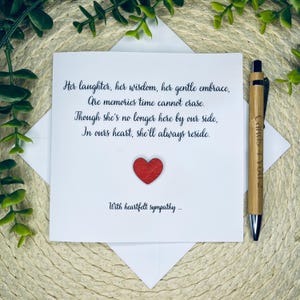 Her laughter, her wisdom, her gentle embrace,
Are memories time cannot erase.
Though she's no longer here by our side,
In ours heart, she'll always reside.
With heartfelt sympathy ...